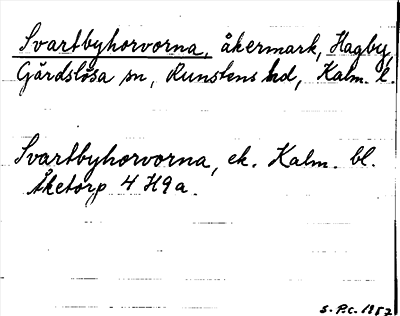 Svartbyhorvorna, åkermark, Hagby,
Gårdslösa sn, Runstens hd, Kalm. l.
Svartbyhorvorna, ek. Kalm. bl.
Åketorp 4 H9a.
S. P.C. 1952